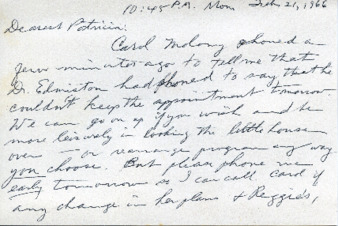 10:45 P.M. Mon Feb 21, 1966
Dearest Patricia:
Carol Molony phoned a
few minutes ago to tell me that
Dr. Edmiston had phoned to say that he
couldn't keep the appointment tomorrow.
We can go on up if you wish and be
more leisurely in looking the little house
over — or rearrange program any way
you choose. But please phone me
early tomorrow so I can call Carol if
any change in her plans & Reggie's,